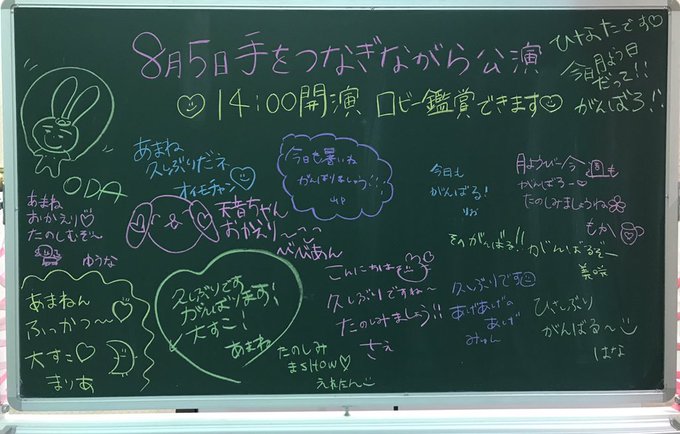 8月5日手をつなぎながら公演
♡14:00開演 ロビー鑑賞できます♡
ひなたです♡
今日月よう日
だって!!
がんばろ!!
ODA
あまね
久しぶりだネ
オイモチャン♡
今日も暑いわ
がんばりましょう!!
今日も
がんばる!
りお
月ようびー今日も
がんばろー♡
たのしみましょうね
もか
あまね
おかえり♡
たのしむぞ〜
ゆうな
天音ちゃん
おかえり〜
べびあん
がんばる!!
がんばるぞー
美咲
こんにちは
久しぶりですね〜
たのしみましょう!!
さえ
久しぶりです
あげあげの
あげ
みゆん
ひさしぶり
がんばる〜
はな
あまねん
ふっかつ〜♡
大すこ♡
まりあ
久しぶりです
がんばります!
大すこ!
あまね
たのしみ
まshow♡
えれたん